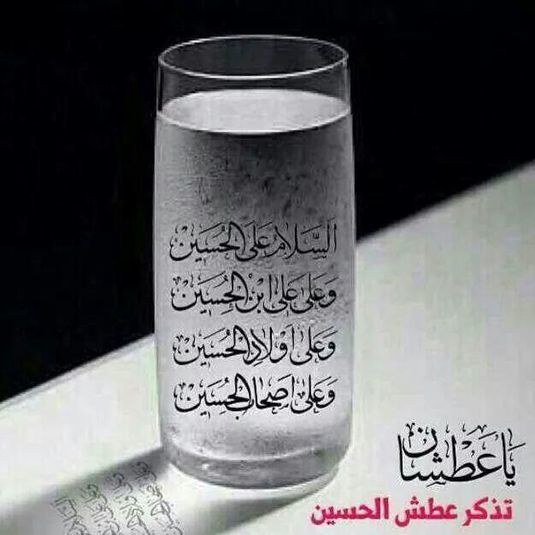 السَّلامُ عَلَى الحُسَين
وَعَلى عَلي ابْنِ الحُسِيَن
وَعَلى اَولادِ الحُسَين
وَعَلى اَصحابِ الحُسَين
يَا عَطْشَان
تذكر عطش الحسين